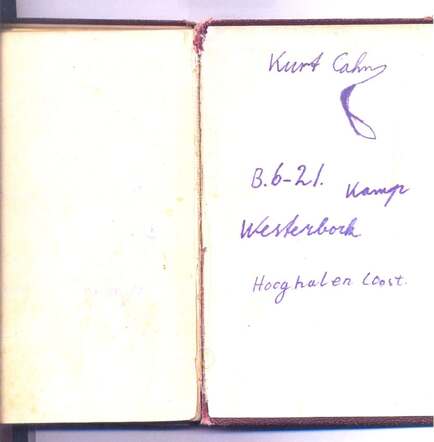 Kurt Cahn
B.6-21. Kamp
Westerbork
Hooghalen Oost.